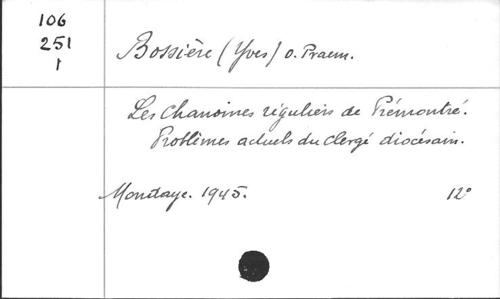 106
251
1
Bossière (Yves) o. Praem.
Les Chanoines réguliers de Prémontré.
Problèmes actuels du clergé diocésain.
Mondaye. 1945.
12°